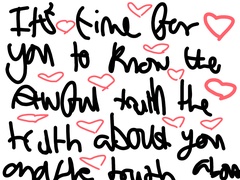 It's time for
you to know the
awful truth the
truth about you
and the truth abou